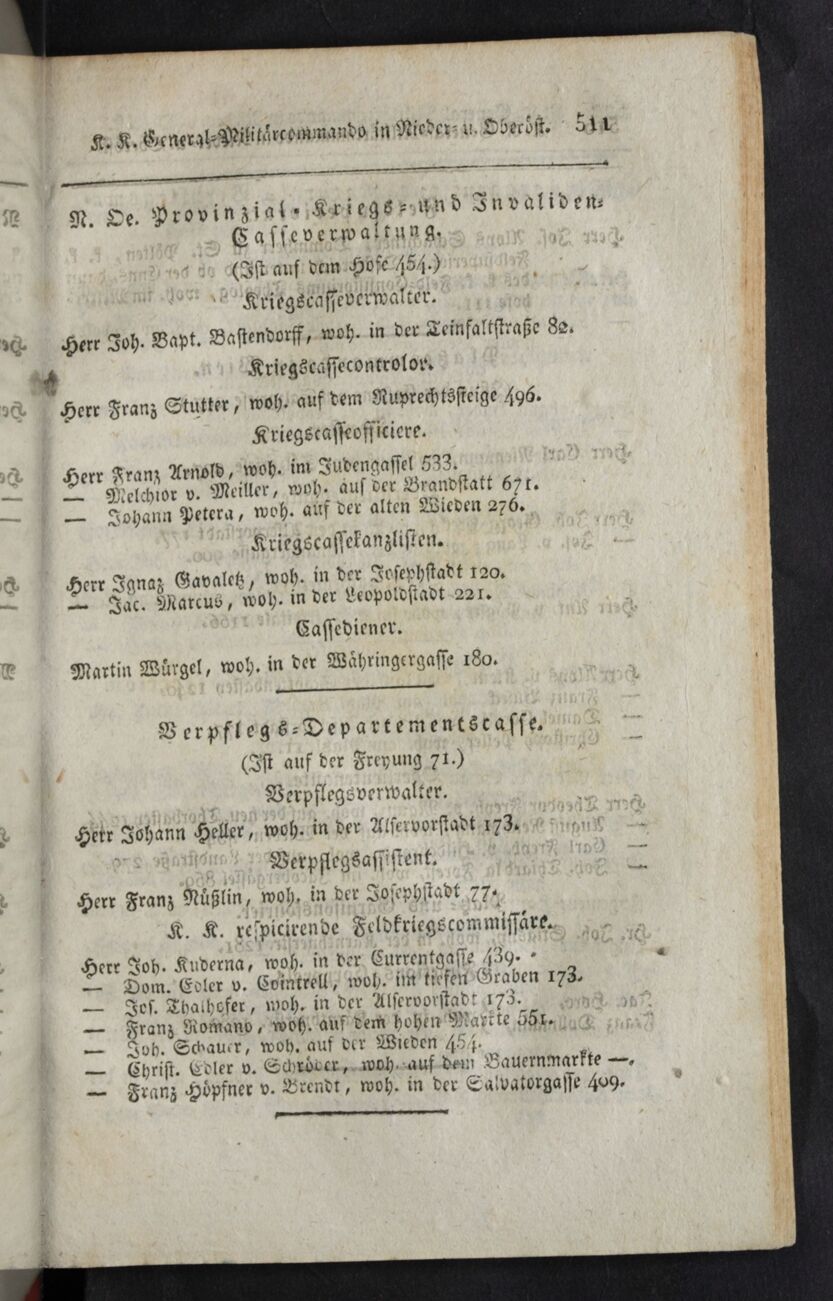 K. K. General-Militärcommando in Nieder- u. Oberöst. 511
N. Oe. Provinzial-Kriegs- und Invaliden-
Casseverwaltung.
(Ist auf dem Hofe 454.)
Kriegscasseverwalter.
Herr Joh. Bapt. Bastendorff, woh. in der Teinfaltstraße 82.
Kriegscassecontrolor.
Herr Franz Stutter, woh. auf dem Ruprechtssteige 496.
Kriegscasseofficiere.
Herr Franz Arnold, woh. im Judengassel 533.
— Melchior v. Meiller, woh. auf der Brandstatt 671.
— Johann Petera, woh. auf der alten Wieden 276.
Kriegscassekanzlisten.
Herr Ignaz Gavaletz, woh. in der Josephstadt 120.
— Jac. Marcus, woh. in der Leopoldstadt 221.
Cassediener.
Martin Würgel, woh. in der Währingergasse 180.
Verpflegs-Departementscasse.
(Ist auf der Freyung 71.)
Verpflegsverwalter.
Herr Johann Heller, woh. in der Alservorstadt 173.
Verpflegsassistent.
Herr Franz Nüßlin, woh. in der Josephstadt 77.
K. K. respicirende Feldkriegscommissäre.
Herr Joh. Kuderna, woh. in der Currentgasse 439.
— Dom. Edler v. Cointrell, woh. im tiefen Graben 173.
— Jos. Thalhofer, woh. in der Alservorstadt 173.
— Franz Romano, woh. auf dem hohen Markte 551.
— Joh. Schauer, woh. auf der Wieden 454.
— Christ. Edler v. Schröder, woh. auf dem Bauernmarkte —.
— Franz Höpfner v. Brendt, woh. in der Salvatorgasse 409.